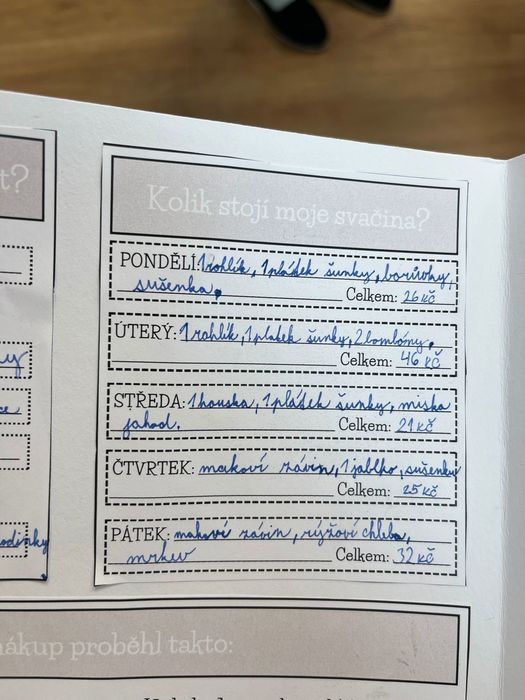 t?
Kolik stojí moje svačina?
PONDĚLÍ: 1 rohlík, 1 plátek šunky, borůvky,
sušenka. Celkem: 26 kč
ÚTERÝ: 1 rohlík, 1 platek šunky, 2 bombóny.
Celkem: 46 kč
STŘEDA: 1 houska, 1 plátek šunky, miska
jahod. Celkem: 21 kč
ČTVRTEK: makoví závin, 1 jablko, sušenku
Celkem: 25 kč
PÁTEK: makoví závin, rýžoví chleba,
mrkev Celkem: 32 kč
odinky
nákup proběhl takto: